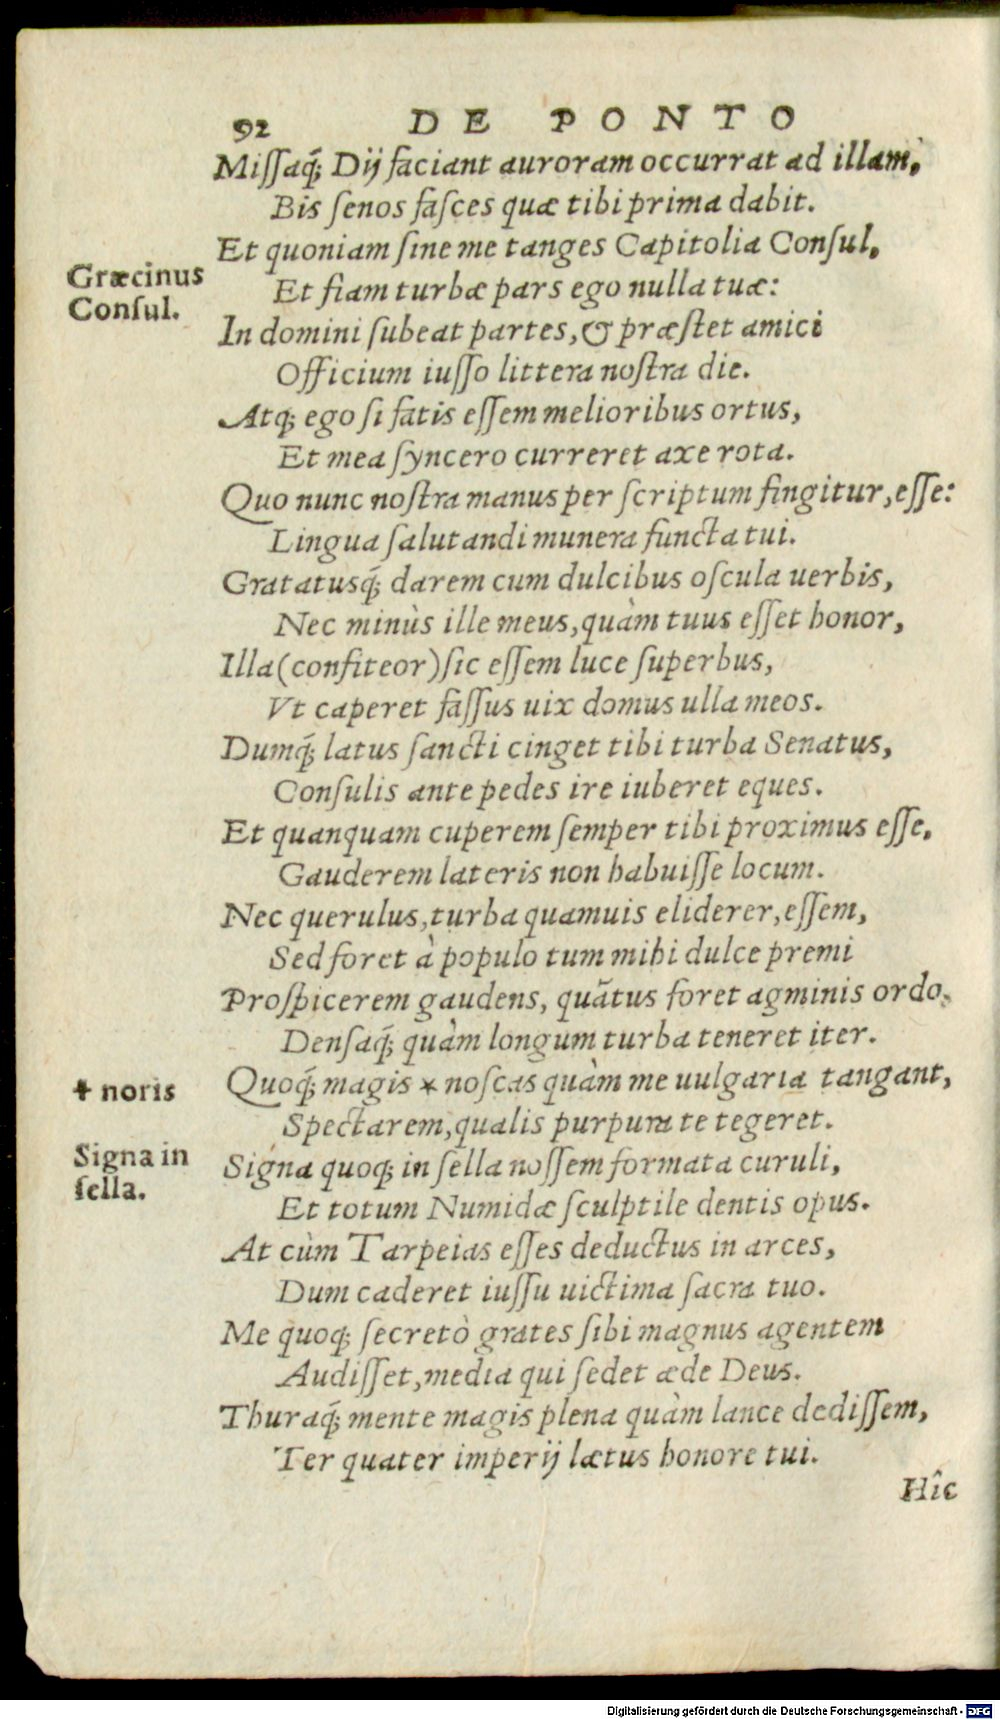 92 DE PONTO
Miſſaq́; Dij faciant auroram occurrat ad illam,
Bis ſenos faſces quæ tibi prima dabit.
Et quoniam ſine me tanges Capitolia Conſul,
Græcinus
Conſul.
Et fiam turbæ pars ego nulla tuæ:
In domini ſubeat partes, & præſtet amici
Officium iuſſo littera noſtra die.
Atq; ego ſi fatis eſſem melioribus ortus,
Et mea ſyncero curreret axe rota.
Quo nunc noſtra manus per ſcriptum fingitur, eſſe:
Lingua ſalutandi munera functa tui.
Gratatusq́; darem cum dulcibus oſcula uerbis,
Nec minùs ille meus, quàm tuus eſſet honor,
Illa (confiteor) ſic eſſem luce ſuperbus,
Vt caperet faſſus uix domus ulla meos.
Dumq́; latus ſancti cinget tibi turba Senatus,
Conſulis ante pedes ire iuberet eques.
Et quanquam cuperem ſemper tibi proximus eſſe,
Gauderem lateris non habuiſſe locum.
Nec querulus, turba quamuis eliderer, eſſem,
Sed foret à populo tum mihi dulce premi
Proſpicerem gaudens, quãtus foret agminis ordo,
Denſaq́; quàm longum turba teneret iter.
✝ noris
Quoq́; magis * noſcas quàm me uulgaria tangant,
Spectarem, qualis purpura te tegeret.
Signa in
ſella.
Signa quoq; in ſella noſſem formata curuli,
Et totum Numidæ ſculptile dentis opus.
At cùm Tarpeias eſſes deductus in arces,
Dum caderet iuſſu uictima ſacra tuo.
Me quoq; ſecretò grates ſibi magnus agentem
Audiſſet, media qui ſedet æde Deus.
Thuraq́; mente magis plena quàm lance dediſſem,
Ter quater imperij lætus honore tui.
Hîc
Digitalisierung gefördert durch die Deutsche Forschungsgemeinschaft - DFG